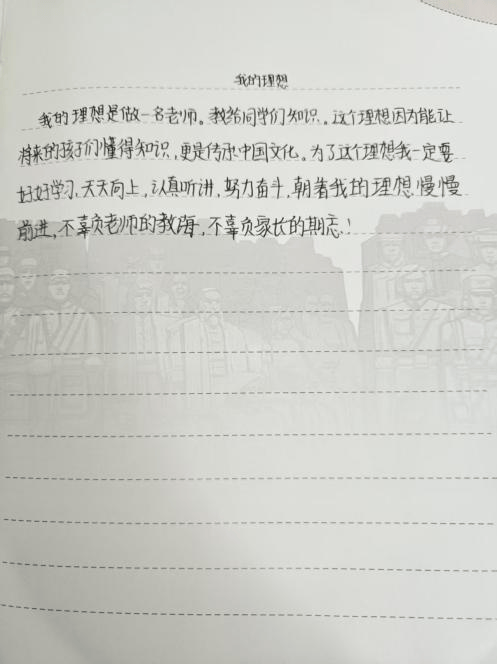 我的理想
我的理想是做一名老师。教给同学们知识。这个理想因为能让
将来的孩子们懂得知识,更是传承中国文化。为了这个理想我一定要
好好学习、天天向上,认真听讲,努力奋斗,朝着我的理想慢慢
前进,不辜负老师的教海,不辜负家长的期忘!